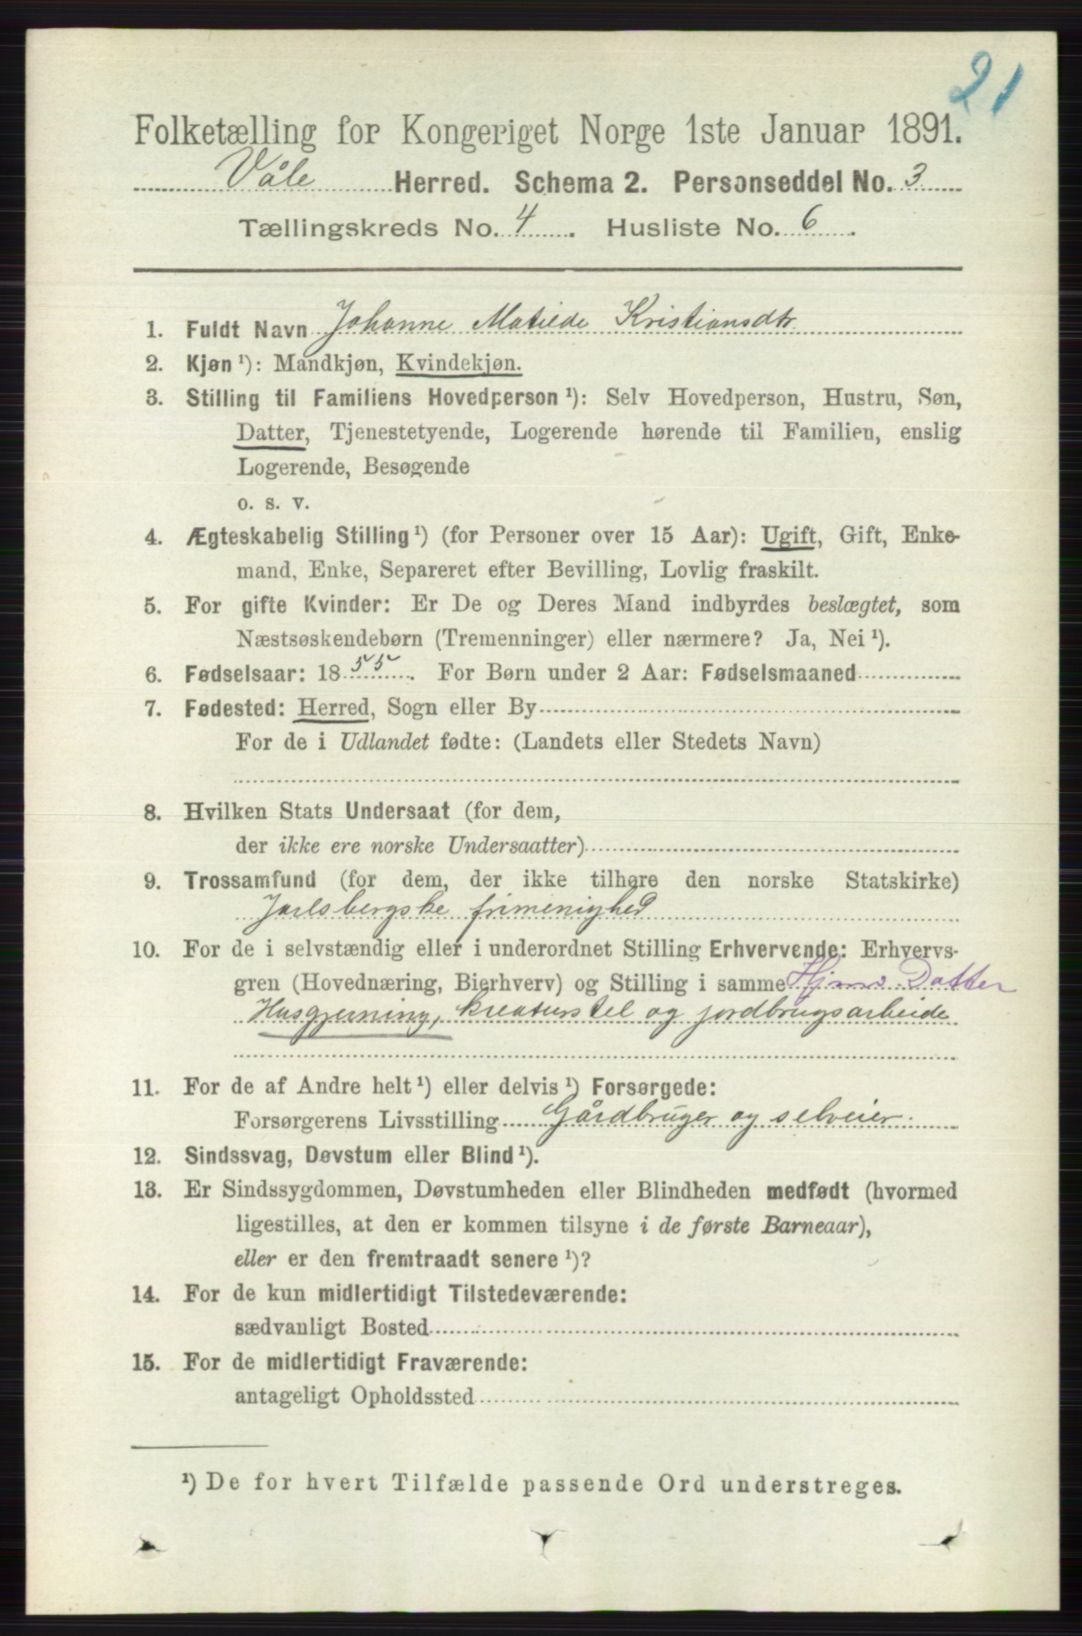 21
Folketælling for Kongeriget Norge 1ste Januar 1891.
Våle Herred. Schema 2. Personseddel No. 3
Tællingskreds No. 4. Husliste No. 6.
1. Fuldt Navn Johanne Matilde Kristiansdtr
2. Kjøn ¹): Mandkjøn, Kvindekjøn.
3. Stilling til Familiens Hovedperson ¹): Selv Hovedperson, Hustru, Søn,
Datter, Tjenestetyende, Logerende hørende til Familien, enslig
Logerende, Besøgende
o. s. v.
4. Ægteskabelig Stilling ¹) (for Personer over 15 Aar): Ugift, Gift, Enke-
mand, Enke, Separeret efter Bevilling, Lovlig fraskilt.
5. For gifte Kvinder: Er De og Deres Mand indbyrdes beslægtet, som
Næstsøskendebørn (Tremenninger) eller nærmere? Ja, Nei ¹).
6. Fødselsaar: 1855. For Børn under 2 Aar: Fødselsmaaned
7. Fødested: Herred, Sogn eller By
For de i Udlandet fødte: (Landets eller Stedets Navn)
8. Hvilken Stats Undersaat (for dem,
der ikke ere norske Undersaatter)
9. Trossamfund (for dem, der ikke tilhøre den norske Statskirke)
Jarlsbergske frimenighed
10. For de i selvstændig eller i underordnet Stilling Erhvervende: Erhvervs-
gren (Hovednæring, Bierhverv) og Stilling i samme Hjms Datter
Husgjerning, kreaturstel og jordbrugsarbeide
11. For de af Andre helt ¹) eller delvis ¹) Forsørgede:
Forsørgerens Livsstilling Gårdbruger og selveier.
12. Sindssvag, Døvstum eller Blind ¹).
13. Er Sindssygdommen, Døvstumheden eller Blindheden medfødt (hvormed
ligestilles, at den er kommen tilsyne i de første Barneaar),
eller er den fremtraadt senere ¹)?
14. For de kun midlertidigt Tilstedeværende:
sædvanligt Bosted
15. For de midlertidigt Fraværende:
antageligt Opholdssted
¹) De for hvert Tilfælde passende Ord understreges.